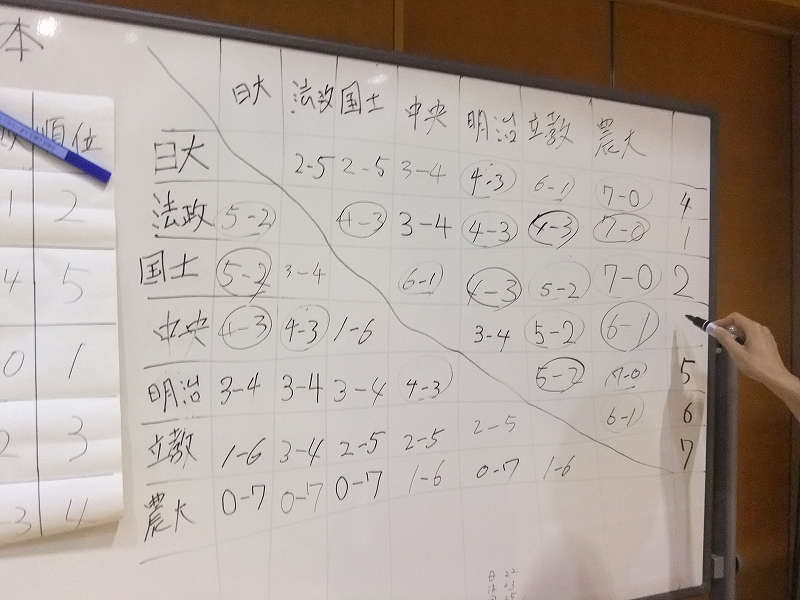 本
順位
1 2
4 5
0 1
2 3
-3 4
日大 法政 国士 中央 明治 立教 農大
日大 2-5 2-5 3-4 4-3 6-1 7-0 4
法政 5-2 4-3 3-4 4-3 4-3 7-0 1
国士 5-2 3-4 6-1 4-3 5-2 7-0 2
中央 4-3 4-3 1-6 3-4 5-2 6-1
明治 3-4 3-4 3-4 4-3 5-2 7-0 5
立教 1-6 3-4 2-5 2-5 2-5 6-1 6
農大 0-7 0-7 0-7 1-6 0-7 1-6 7